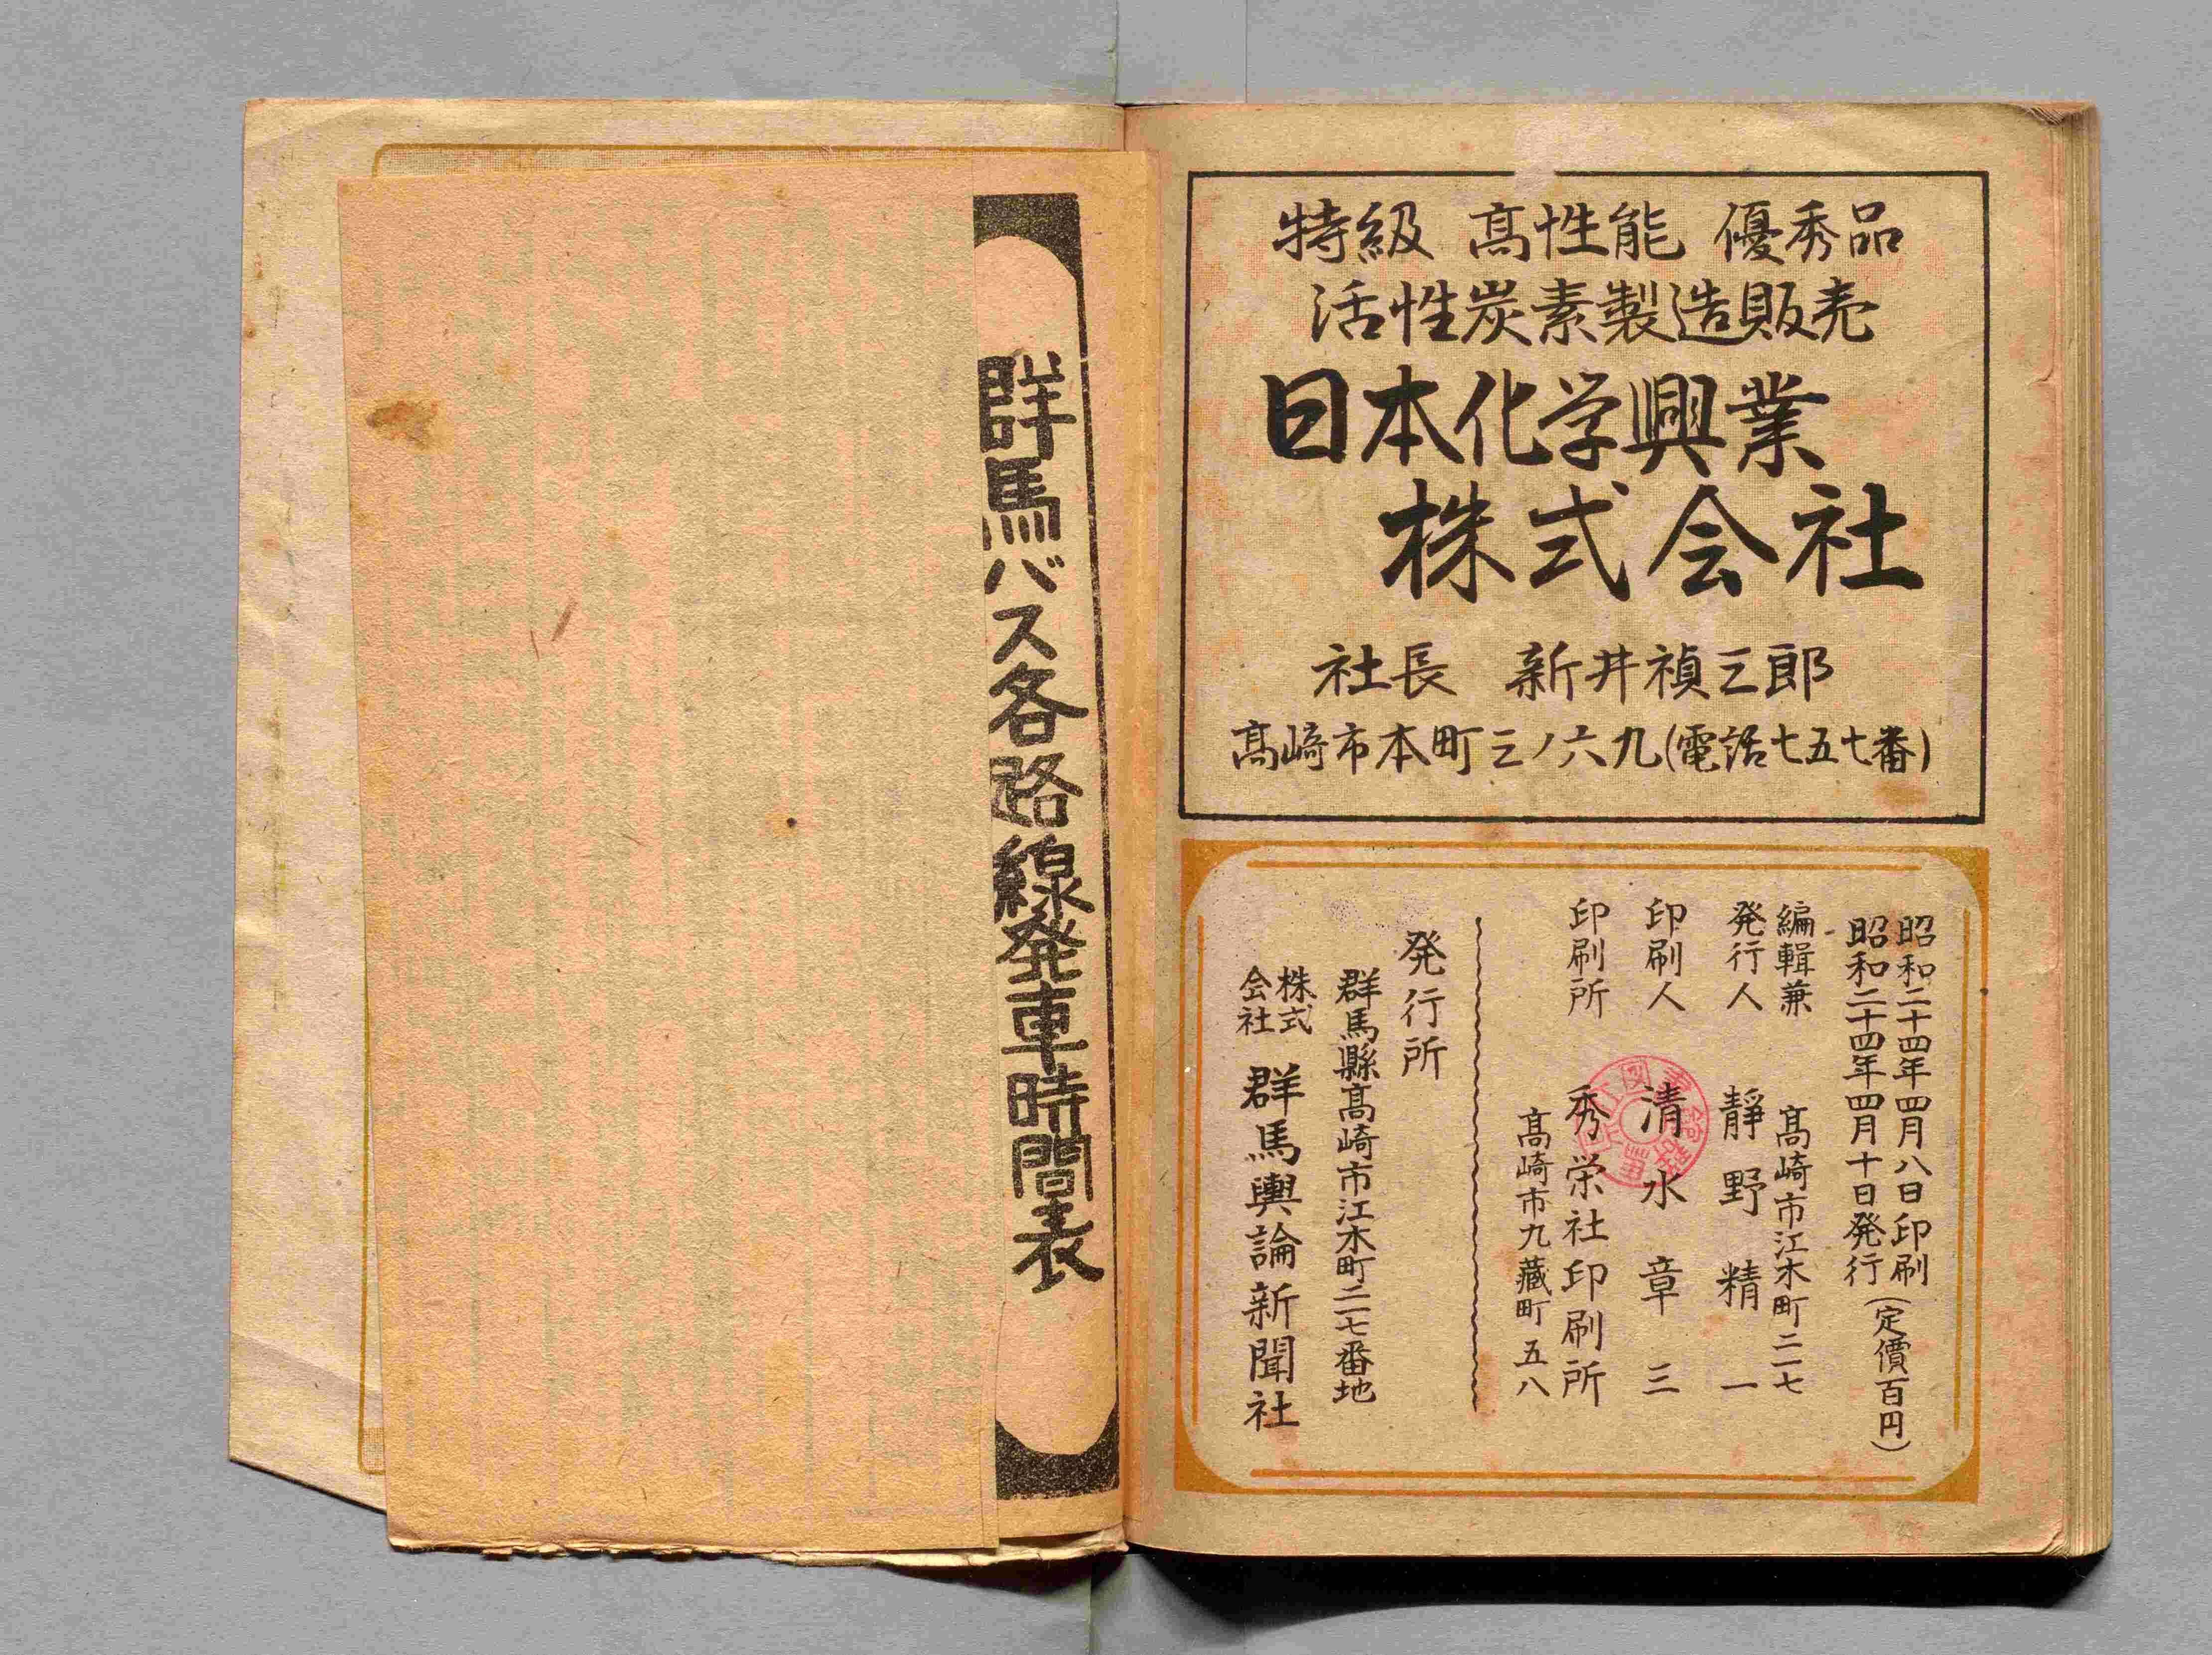 特級 髙性能 優秀品
活性炭素製造販売
日本化学興業
株式会社
社長 新井禎三郎
髙崎市本町三ノ六九(電話七五七番)
昭和二十四年四月八日印刷
昭和二十四年四月十日発行
(定價百円)
編輯兼
発行人
髙崎市江木町二一七
靜野精一
印刷人 清水章三
印刷所 秀栄社印刷所
髙崎市九藏町五八
発行所
群馬縣髙崎市江木町二一七番地
株式
会社
群馬輿論新聞社
群馬バス各路線発車時間表